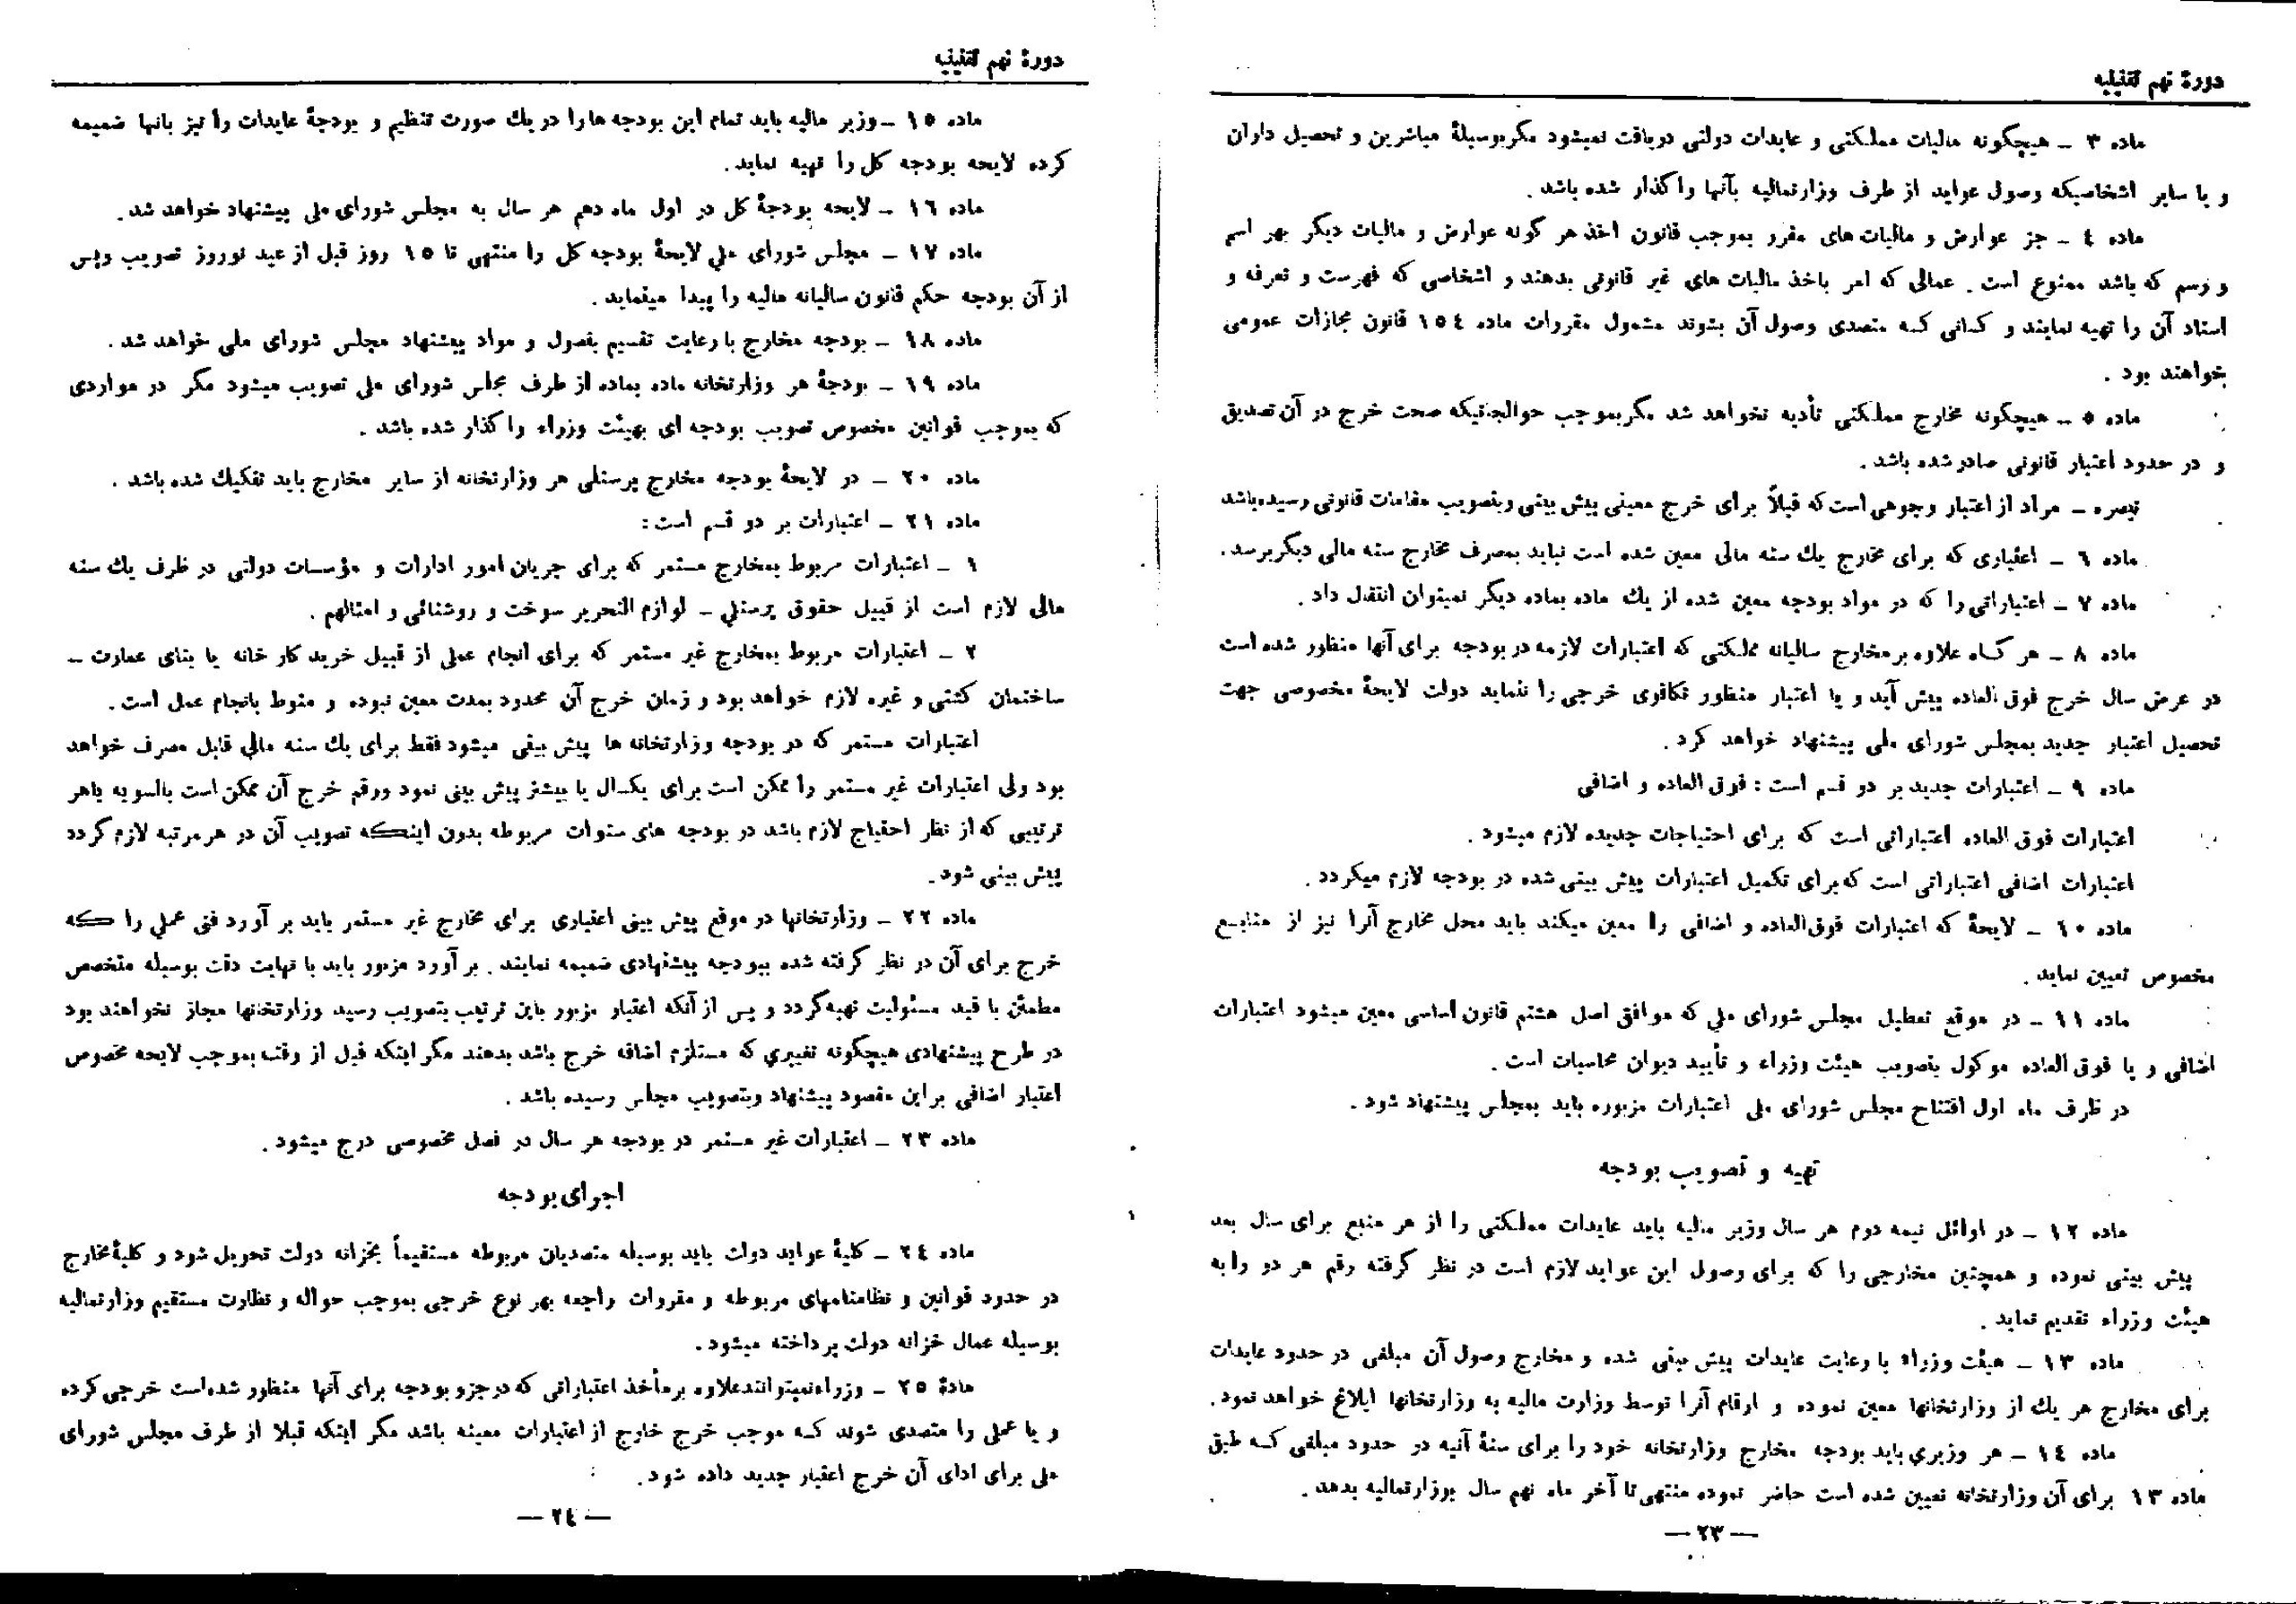 دورهٔ نهم تقنینیه
ماده ۳ ــ هیچگونه مالیات مملکتی و عایدات دولتی دریافت نمیشود مگر بوسیلهٔ مباشرین و تحصیل داران
و یا سایر اشخاصیکه وصول عواید از طرف وزارتمالیه بآنها واگذار شده باشد .
ماده ٤ ــ جز عوارض و مالیات های مقرر بموجب قانون اخذ هر گونه عوارض و مالیات دیگر بهر اسم
و رسم که باشد ممنوع است . عمالی که امر باخذ مالیات های غیر قانونی بدهند و اشخاصی که فهرست و تعرفه و
اسناد آن را تهیه نمایند و کسانی کـه متصدی وصول آن بشوند مشمول مقررات ماده ١٥٤ قانون مجازات عمومی
خواهند بود .
ماده ٥ ــ هیچگونه مخارج مملکتی تأدیه نخواهد شد مگر بموجب حوالجاتیکه صحت خرج در آن تصدیق
و در حدود اعتبار قانونی صادر شده باشد .
تبصره ــ مراد از اعتبار وجوهی است که قبلاً برای خرج معینی پیش بینی وبتصویب مقامات قانونی رسیده باشد
ماده ٦ ــ اعتباری که برای مخارج یك سنه مالی معین شده است نباید بمصرف مخارج سنه مالی دیگر برسد .
ماده ٧ ــ اعتباراتی را که در مواد بودجه معین شده از یك ماده بماده دیگر نمیتوان انتقال داد .
ماده ٨ ــ هر گـاه علاوه بر مخارج سالیانه مملکتی که اعتبارات لازمه در بودجه برای آنها منظور شده است
در عرض سال خرج فوق العاده پیش آید و یا اعتبار منظور تکافوی خرجی را ننماید دولت لایحهٔ مخصوصی جهت
تحصیل اعتبار جدید بمجلس شورای ملی پیشنهاد خواهد کرد .
ماده ٩ ــ اعتبارات جدید بر دو قسم است : فوق العاده و اضافی
اعتبارات فوق العاده اعتباراتی است که برای احتیاجات جدیده لازم میشود .
اعتبارات اضافی اعتباراتی است که برای تکمیل اعتبارات پیش بینی شده در بودجه لازم میگردد .
ماده ١٠ ــ لایحهٔ که اعتبارات فوق‌العاده و اضافی را معین میکند باید محل مخارج آنرا نیز از منابـع
مخصوص تعیین نماید .
ماده ١١ ــ در موقع تعطیل مجلس شورای ملی که موافق اصل هشتم قانون اساسی معین میشود اعتبارات
اضافی و یا فوق العاده موکول بتصویب هیئت وزراء و تأیید دیوان محاسبات است .
در ظرف ماه اول افتتاح مجلس شورای ملی اعتبارات مزبوره باید بمجلس پیشنهاد شود .
تهیه و تصویب بودجه
ماده ١٢ ــ در اوائل نیمه دوم هر سال وزیر مالیه باید عایدات مملکتی را از هر منبع برای سال بعد
پیش بینی نموده و همچنین مخارجی را که برای وصول این عواید لازم است در نظر گرفته رقم هر دو را به
هیئت وزراء تقدیم نماید .
ماده ١٣ ــ هیئت وزراء با رعایت عایدات پیش بینی شده و مخارج وصول آن مبلغی در حدود عایدات
برای مخارج هر یك از وزارتخانها معین نموده و ارقام آنرا توسط وزارت مالیه به وزارتخانها ابلاغ خواهد نمود .
ماده ١٤ ــ هر وزیری باید بودجه مخارج وزارتخانه خود را برای سنهٔ آتیه در حدود مبلغی کـه طبق
ماده ١٣ برای آن وزارتخانه تعیین شده است حاضر نموده منتهی تا آخر ماه نهم سال بوزارتمالیه بدهد .
— ٢٣ —
دورهٔ نهم تقنینیه
ماده ١٥ ــ وزیر مالیه باید تمام این بودجه ها را در یك صورت تنظیم و بودجهٔ عایدات را نیز بانها ضمیمه
کرده لایحه بودجه کل را تهیه نماید .
ماده ١٦ ــ لایحه بودجهٔ کل در اول ماه دهم هر سال به مجلس شورای ملی پیشنهاد خواهد شد .
ماده ١٧ ــ مجلس شورای ملی لایحهٔ بودجه کل را منتهی تا ١٥ روز قبل از عید نوروز تصویب وپس
از آن بودجه حکم قانون سالیانه مالیه را پیدا مینماید .
ماده ١٨ ــ بودجه مخارج با رعایت تقسیم بفصول و مواد پیشنهاد مجلس شورای ملی خواهد شد .
ماده ١٩ ــ بودجهٔ هر وزارتخانه ماده بماده از طرف مجلس شورای ملی تصویب میشود مگر در مواردی
که بموجب قوانین مخصوص تصویب بودجه ای بهیئت وزراء واگذار شده باشد .
ماده ٢٠ ــ در لایحهٔ بودجه مخارج پرسنلی هر وزارتخانه از سایر مخارج باید تفکیك شده باشد .
ماده ٢١ ــ اعتبارات بر دو قسم است :
١ ــ اعتبارات مربوط بمخارج مستمر که برای جریان امور ادارات و مؤسسات دولتی در ظرف یك سنه
مالی لازم است از قبیل حقوق پرسنلی ــ لوازم التحریر سوخت و روشنائی و امثالهم .
٢ ــ اعتبارات مربوط بمخارج غیر مستمر که برای انجام عملی از قبیل خرید کار خانه یا بنای عمارت ــ
ساختمان کشتی و غیره لازم خواهد بود و زمان خرج آن محدود بمدت معین نبوده و منوط بانجام عمل است .
اعتبارات مستمر که در بودجه وزارتخانه ها پیش بینی میشود فقط برای یك سنه مالی قابل مصرف خواهد
بود ولی اعتبارات غیر مستمر را ممکن است برای یکسال یا بیشتر پیش بینی نمود ورقم خرج آن ممکن است بالسویه یاهر
ترتیبی که از نظر احتیاج لازم باشد در بودجه های سنوات مربوطه بدون اینکه تصویب آن در هر مرتبه لازم گردد
پیش بینی شود .
ماده ٢٢ ــ وزارتخانها در موقع پیش بینی اعتباری برای مخارج غیر مستمر باید بر آورد فنی عملی را که
خرج برای آن در نظر گرفته شده ببودجه پیشنهادی ضمیمه نمایند . بر آورد مزبور باید با نهایت دقت بوسیله متخصص
مطمئن با قید مسئولیت تهیه گردد و پس از آنکه اعتبار مزبور باین ترتیب بتصویب رسید وزارتخانها مجاز نخواهند بود
در طرح پیشنهادی هیچگونه تغییری که مستلزم اضافه خرج باشد بدهند مگر اینکه قبل از وقت بموجب لایحه مخصوص
اعتبار اضافی بر این مقصود پیشنهاد وبتصویب مجلس رسیده باشد .
ماده ٢٣ ــ اعتبارات غیر مستمر در بودجه هر سال در فصل مخصوصی درج میشود .
اجرای بودجه
ماده ٢٤ ــ کلیهٔ عواید دولت باید بوسیله متصدیان مربوطه مستقیماً بخزانه دولت تحویل شود و کلیهٔ مخارج
در حدود قوانین و نظامنامهای مربوطه و مقررات راجعه بهر نوع خرجی بموجب حواله و نظارت مستقیم وزارتمالیه
بوسیله عمال خزانه دولت پرداخته میشود .
مادهٔ ٢٥ ــ وزراء نمیتوانند علاوه بر مأخذ اعتباراتی که در جزو بودجه برای آنها منظور شده است خرجی کرده
و یا عملی را متصدی شوند کـه موجب خرج خارج از اعتبارات معینه باشد مگر اینکه قبلا از طرف مجلس شورای
ملی برای ادای آن خرج اعتبار جدید داده شود .
— ٢٤ —